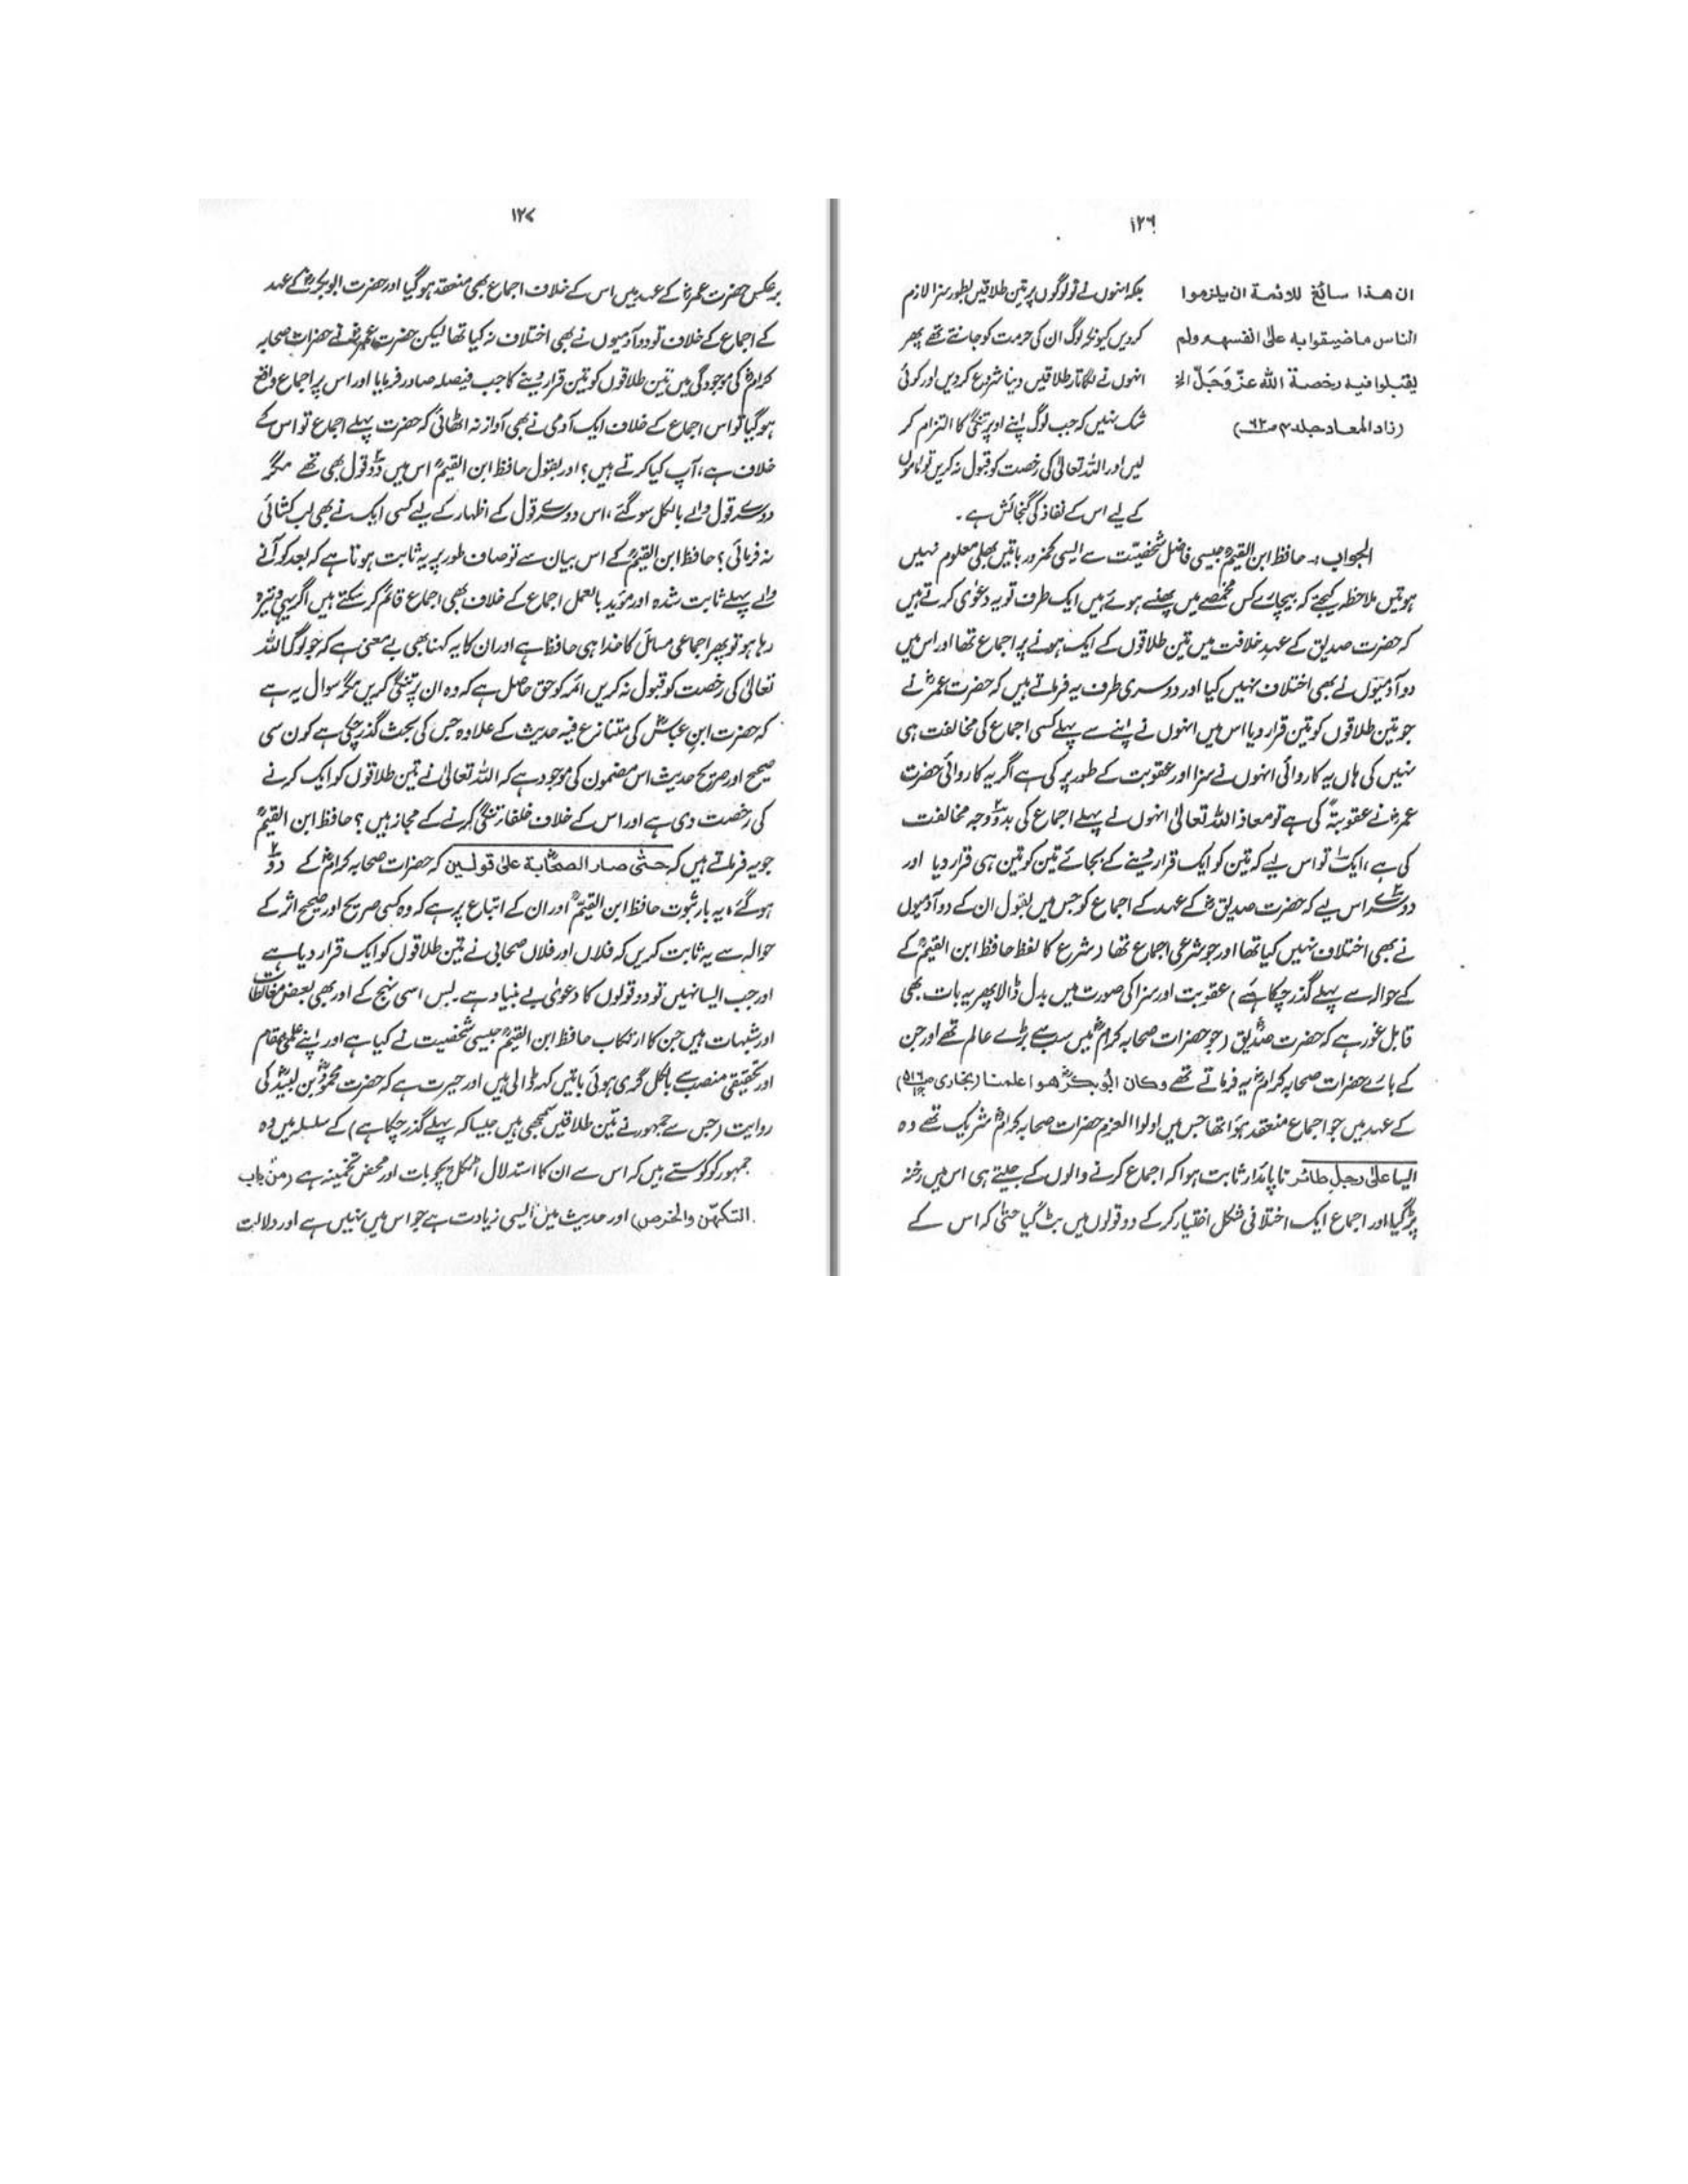 ۱۲۶
ان هذا سائغ للائمة ان يلزموا
الناس ماضيقوا به على انفسهم ولم
يقبلوا فيه رخصة الله عزّ وَجَلّ الخ
(زاد المعاد جلد ۴ ص۶۲)
بلکہ انہوں نے تو لوگوں پر تین طلاقیں بطور سزا لازم
کردیں کیونکہ لوگ ان کی حرمت کو جانتے تھے پھر
انہوں نے لگاتار طلاقیں دینا شروع کردیں اور کوئی
شک نہیں کہ جب لوگ اپنے اوپر تنگی کا التزام کر
لیں اور اللہ تعالیٰ کی رخصت کو قبول نہ کریں تو اماموں
کے لیے اس کے نفاذ کی گنجائش ہے۔
الجواب:۔ حافظ ابن القیمؒ جیسی فاضل شخصیّت سے ایسی کمزور باتیں بھلی معلوم نہیں
ہوتیں ملاحظہ کیجئے کہ بیچارے کس مخمصے میں پھنسے ہوئے ہیں ایک طرف تو یہ دعوٰی کرتے ہیں
کہ حضرت صدیق کے عہدِ خلافت میں تین طلاقوں کے ایک ہونے پر اجماع تھا اور اس میں
دو آدمیوں نے بھی اختلاف نہیں کیا اور دوسری طرف یہ فرماتے ہیں کہ حضرت عمرؓ نے
جو تین طلاقوں کو تین قرار دیا اس میں انہوں نے اپنے سے پہلے کسی اجماع کی مخالفت ہی
نہیں کی ہاں یہ کاروائی انہوں نے سزا اور عقوبت کے طور پر کی ہے اگر یہ کاروائی حضرت
عمرؓ نے عقوبۃً کی ہے تو معاذ اللہ تعالیٰ انہوں نے پہلے اجماع کی بدو وجہ مخالفت
کی ہے، ایک تو اس لیے کہ تین کو ایک قرار دینے کے بجائے تین کو تین ہی قرار دیا اور
دوسرے اس لیے کہ حضرت صدیقؓ کے عہد کے اجماع کو جس میں بقول ان کے دو آدمیوں
نے بھی اختلاف نہیں کیا تھا اور جو شرعی اجماع تھا (شرع کا لفظ حافظ ابن القیمؒ کے
کے حوالہ سے پہلے گذر چکا ہے) عقوبت اور سزا کی صورت میں بدل ڈالا پھر یہ بات بھی
قابل غور ہے کہ حضرت صدیقؓ (جو حضرات صحابہ کرامؓ میں سب سے بڑے عالم تھے اور جن
کے بارے حضرات صحابہ کرامؓ یہ فرماتے تھے وکان ابُو بکرؓ ھوا علمنا (بخاری ص۵۱۶ ج۱)
کے عہد میں جو اجماع منعقد ہوَا تھا جس میں اولوا العزم حضرات صحابہ کرامؓ شریک تھے وہ
ایسا علیٰ رجلِ طائر ناپائدار ثابت ہوا کہ اجماع کرنے والوں کے جیتے ہی اس میں رخنہ
پڑ گیا اور اجماع ایک اختلافی شکل اختیار کرکے دو قولوں میں بٹ گیا حتیٰ کہ اس کے
۱۲۷
برعکس حضرت عمرؓ کے عہد میں اس کے خلاف اجماع بھی منعقد ہو گیا اور حضرت ابوبکرؓ کے عہد
کے اجماع کے خلاف تو دو آدمیوں نے بھی اختلاف نہ کیا تھا لیکن حضرت عمرؓ نے حضرات صحابہ
کرامؓ کی موجودگی میں تین طلاقوں کو تین قرار دینے کا جب فیصلہ صادر فرمایا اور اس پر اجماع واقع
ہو گیا تو اس اجماع کے خلاف ایک آدمی نے بھی آواز نہ اٹھائی کہ حضرت پہلے اجماع تو اس کے
خلاف ہے، آپ کیا کرتے ہیں؟ اور بقول حافظ ابن القیمؒ اس میں دو قول بھی تھے مگر
دوسرے قول والے بالکل سو گئے، اس دوسرے قول کے اظہار کے لیے کسی ایک نے بھی لب کشائی
نہ فرمائی؟ حافظ ابن القیمؒ کے اس بیان سے تو صاف طور پر یہ ثابت ہوتا ہے کہ بعد کو آنے
والے پہلے ثابت شدہ اور مؤید بالعمل اجماع کے خلاف بھی اجماع قائم کر سکتے ہیں اگر یہی وتیرہ
رہا ہو تو پھر اجماعی مسائل کا خدا ہی حافظ ہے اور ان کا یہ کہنا بھی بے معنی ہے کہ جو لوگ اللہ
تعالیٰ کی رخصت کو قبول نہ کریں ائمہ کو حق حاصل ہے کہ وہ ان پر تنگی کریں مگر سوال یہ ہے
کہ حضرت ابنِ عباسؓ کی متنازع فیہ حدیث کے علاوہ جس کی بحث گذر چکی ہے کون سی
صحیح اور صریح حدیث اس مضمون کی موجود ہے کہ اللہ تعالیٰ نے تین طلاقوں کو ایک کرنے
کی رخصت دی ہے اور اس کے خلاف خلفاء تنگی کرنے کے مجاز ہیں؟ حافظ ابن القیمؒ
جو یہ فرماتے ہیں کہ حتّٰی صار الصحابۃ علیٰ قولین کہ حضرات صحابہ کرامؓ کے دو
ہو گئے، یہ بار ثبوت حافظ ابن القیمؒ اور ان کے اتباع پر ہے کہ وہ کسی صریح اور صحیح اثر کے
حوالہ سے یہ ثابت کریں کہ فلاں اور فلاں صحابی نے تین طلاقوں کو ایک قرار دیا ہے
اور جب ایسا نہیں تو دو قولوں کا دعوٰی بے بنیاد ہے۔ بس اسی نہج کے اور بھی بعض مغالطات
اور شبہات ہیں جن کا ارتکاب حافظ ابن القیمؒ جیسی شخصیت نے کیا ہے اور اپنے علمی مقام
اور تحقیقی منصب سے بالکل گری ہوئی باتیں کہہ ڈالی ہیں اور حیرت ہے کہ حضرت محمودؓ بن لبیدؓ کی
روایت (جس سے جمہور نے تین طلاقیں سمجھی ہیں جیسا کہ پہلے گذر چکا ہے) کے سلسلہ میں وہ
جمہور کو کوستے ہیں کہ اس سے ان کا استدلال اٹکل پچو بات اور محض تخمینہ ہے (من باب
التکھّن والخرص) اور حدیث میں ایسی زیادت ہے جو اس میں نہیں ہے اور دلالت